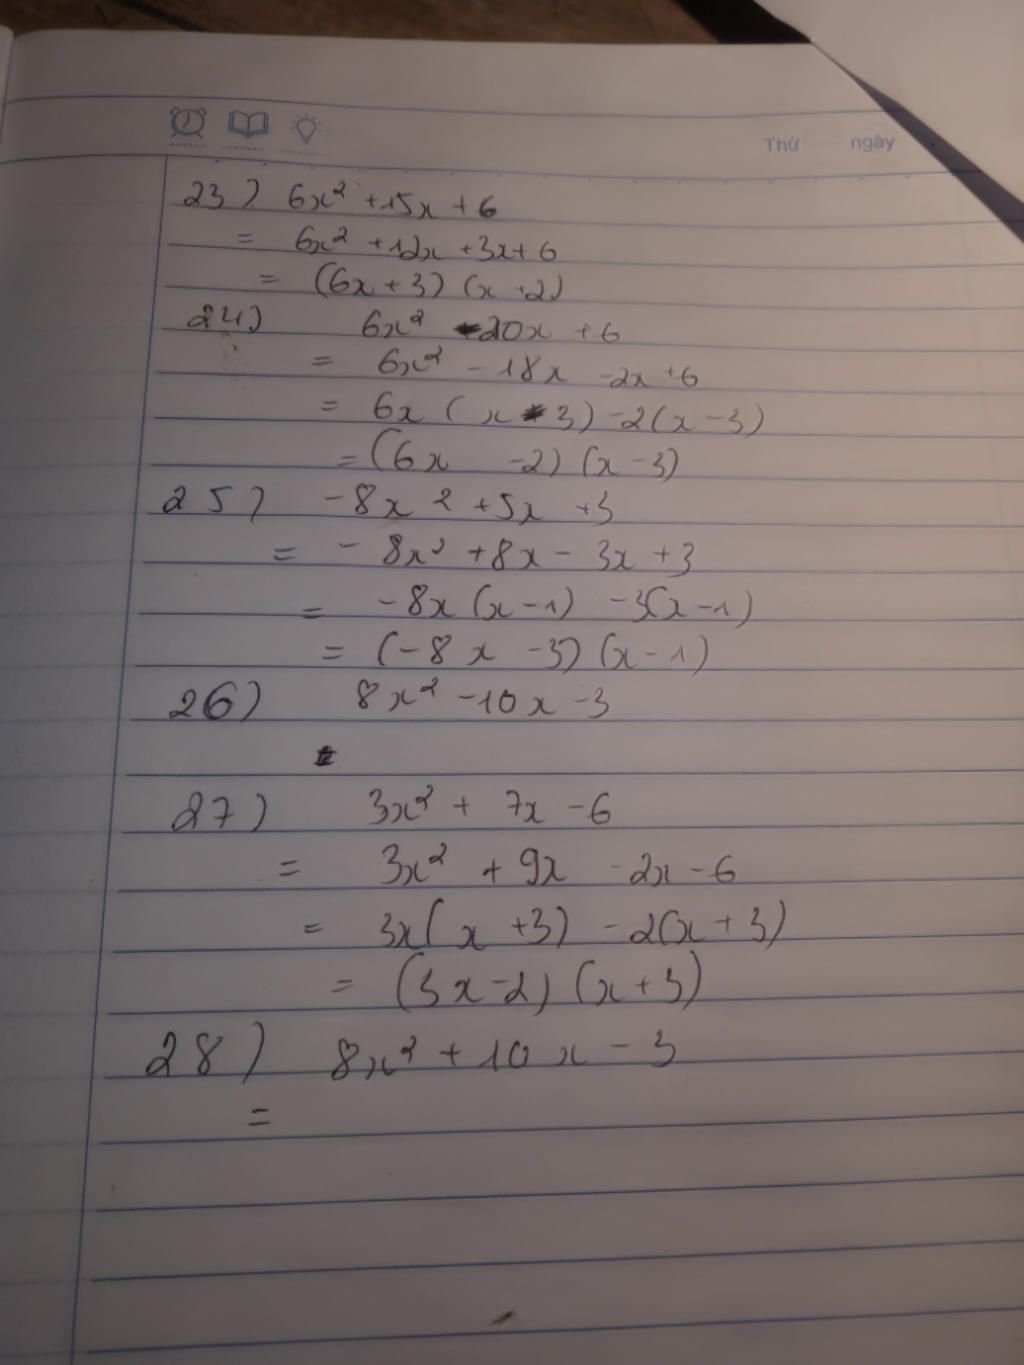 Thứ ngày
23) 6x² +15x + 6
= 6x² +12x +3x+6
= (6x+3) (x+2)
24) 6x² -20x +6
= 6x² -18x -2x+6
= 6x(x-3) -2(x-3)
= (6x -2) (x-3)
25) -8x² +5x +3
= -8x² +8x - 3x +3
= -8x(x-1) -3(x-1)
= (-8x -3) (x-1)
26) 8x² -10x -3
27) 3x² + 7x -6
= 3x² + 9x -2x -6
= 3x(x +3) -2(x+3)
= (3x-2) (x+3)
28) 8x² + 10x - 3
=